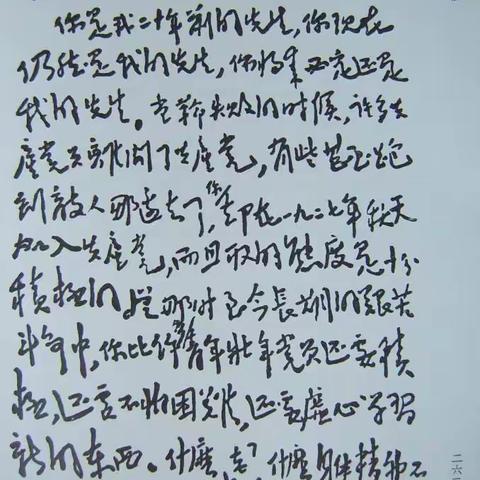 你是我二十年前的先生，你现在
仍然是我的先生，你将来必定还是
我的先生。当革命失败的时候，许多共
产党员离开了共产党，有些甚至跑
到敌人那边去了，你却在一九二七年秋天
加入共产党，而且取的态度是十分
积极的。从那时至今长期的艰苦
斗争中，你比许多青年壮年党员还要积
极，还要不怕困难，还要虚心学习
新的东西。什么"老"，什么"身体精神不
二六